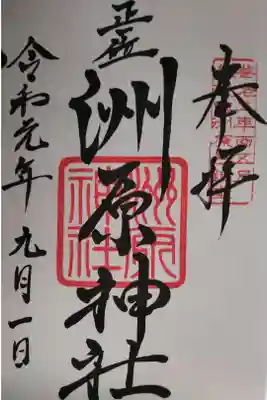 奉拝
正一位
洲原神社
令和元年九月一日
洲原神社